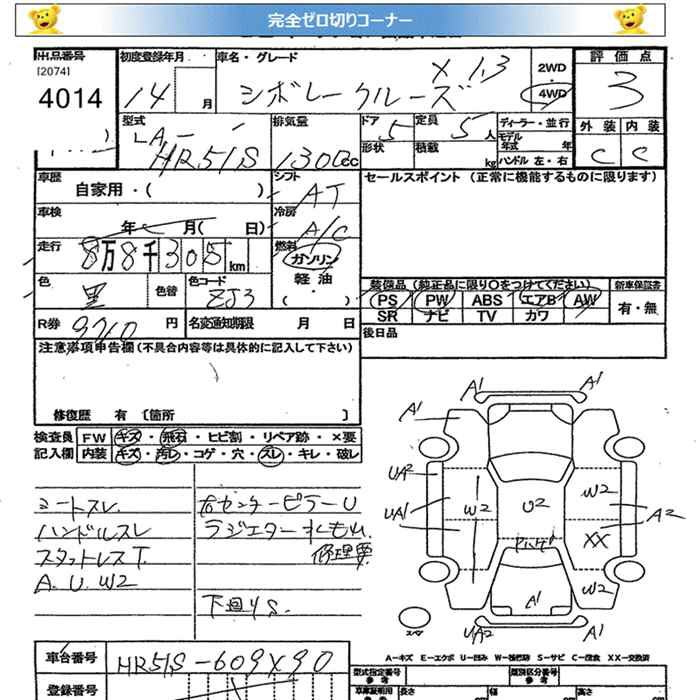 完全ゼロ切りコーナー
出品番号
[2074]
4014
初度登録年月
14
月
車名・グレード
シボレークルーズ X 1.3
2WD
4WD
評価点
3
外装 内装
C C
型式
LA-
HR51S
排気量
1300cc
ドア
5
形状
定員
5人
積載
kg
ディーラー・並行
モデル年式 年
ハンドル 左・右
車歴
自家用・( )
シフト
AT
セールスポイント (正常に機能するものに限ります)
車検
年 月( 日)
冷房
A/C
走行
8万8千305km
燃料
ガソリン
軽油
( ・ )
色
黒
色替
色コード
ZJ3
装備品 (純正品に限り○をつけてください)
PS PW ABS エアB AW
SR ナビ TV カワ
新車保証書
有・無
R券
9710 円
名変通知期限 月 日
後日品
注意事項申告欄(不具合内容等は具体的に記入して下さい)
修復歴 有 〔箇所 〕
検査員記入欄
FW キズ・飛石・ヒビ割・リペア跡・×要
内装 キズ・汚レ・コゲ・穴・スレ・キレ・破レ
シートスレ
ハンドルスレ
スタッドレスT.
A.U.W2
右センターピラーU
ラジエターサポートU.
修理要
下廻りS.
A1 A1
A1
UA2
UA1
W2
U2
W2
A2
XX
W2
A1
UA2
A1
スペア
A-キズ E-エクボ U-凹み W-補修跡 S-サビ C-腐食 XX-交換済
車台番号
HR51S-609X90
登録番号
型式指定番号
参考
類別区分番号
参考
車庫証明用
参考
長さ
幅
高さ